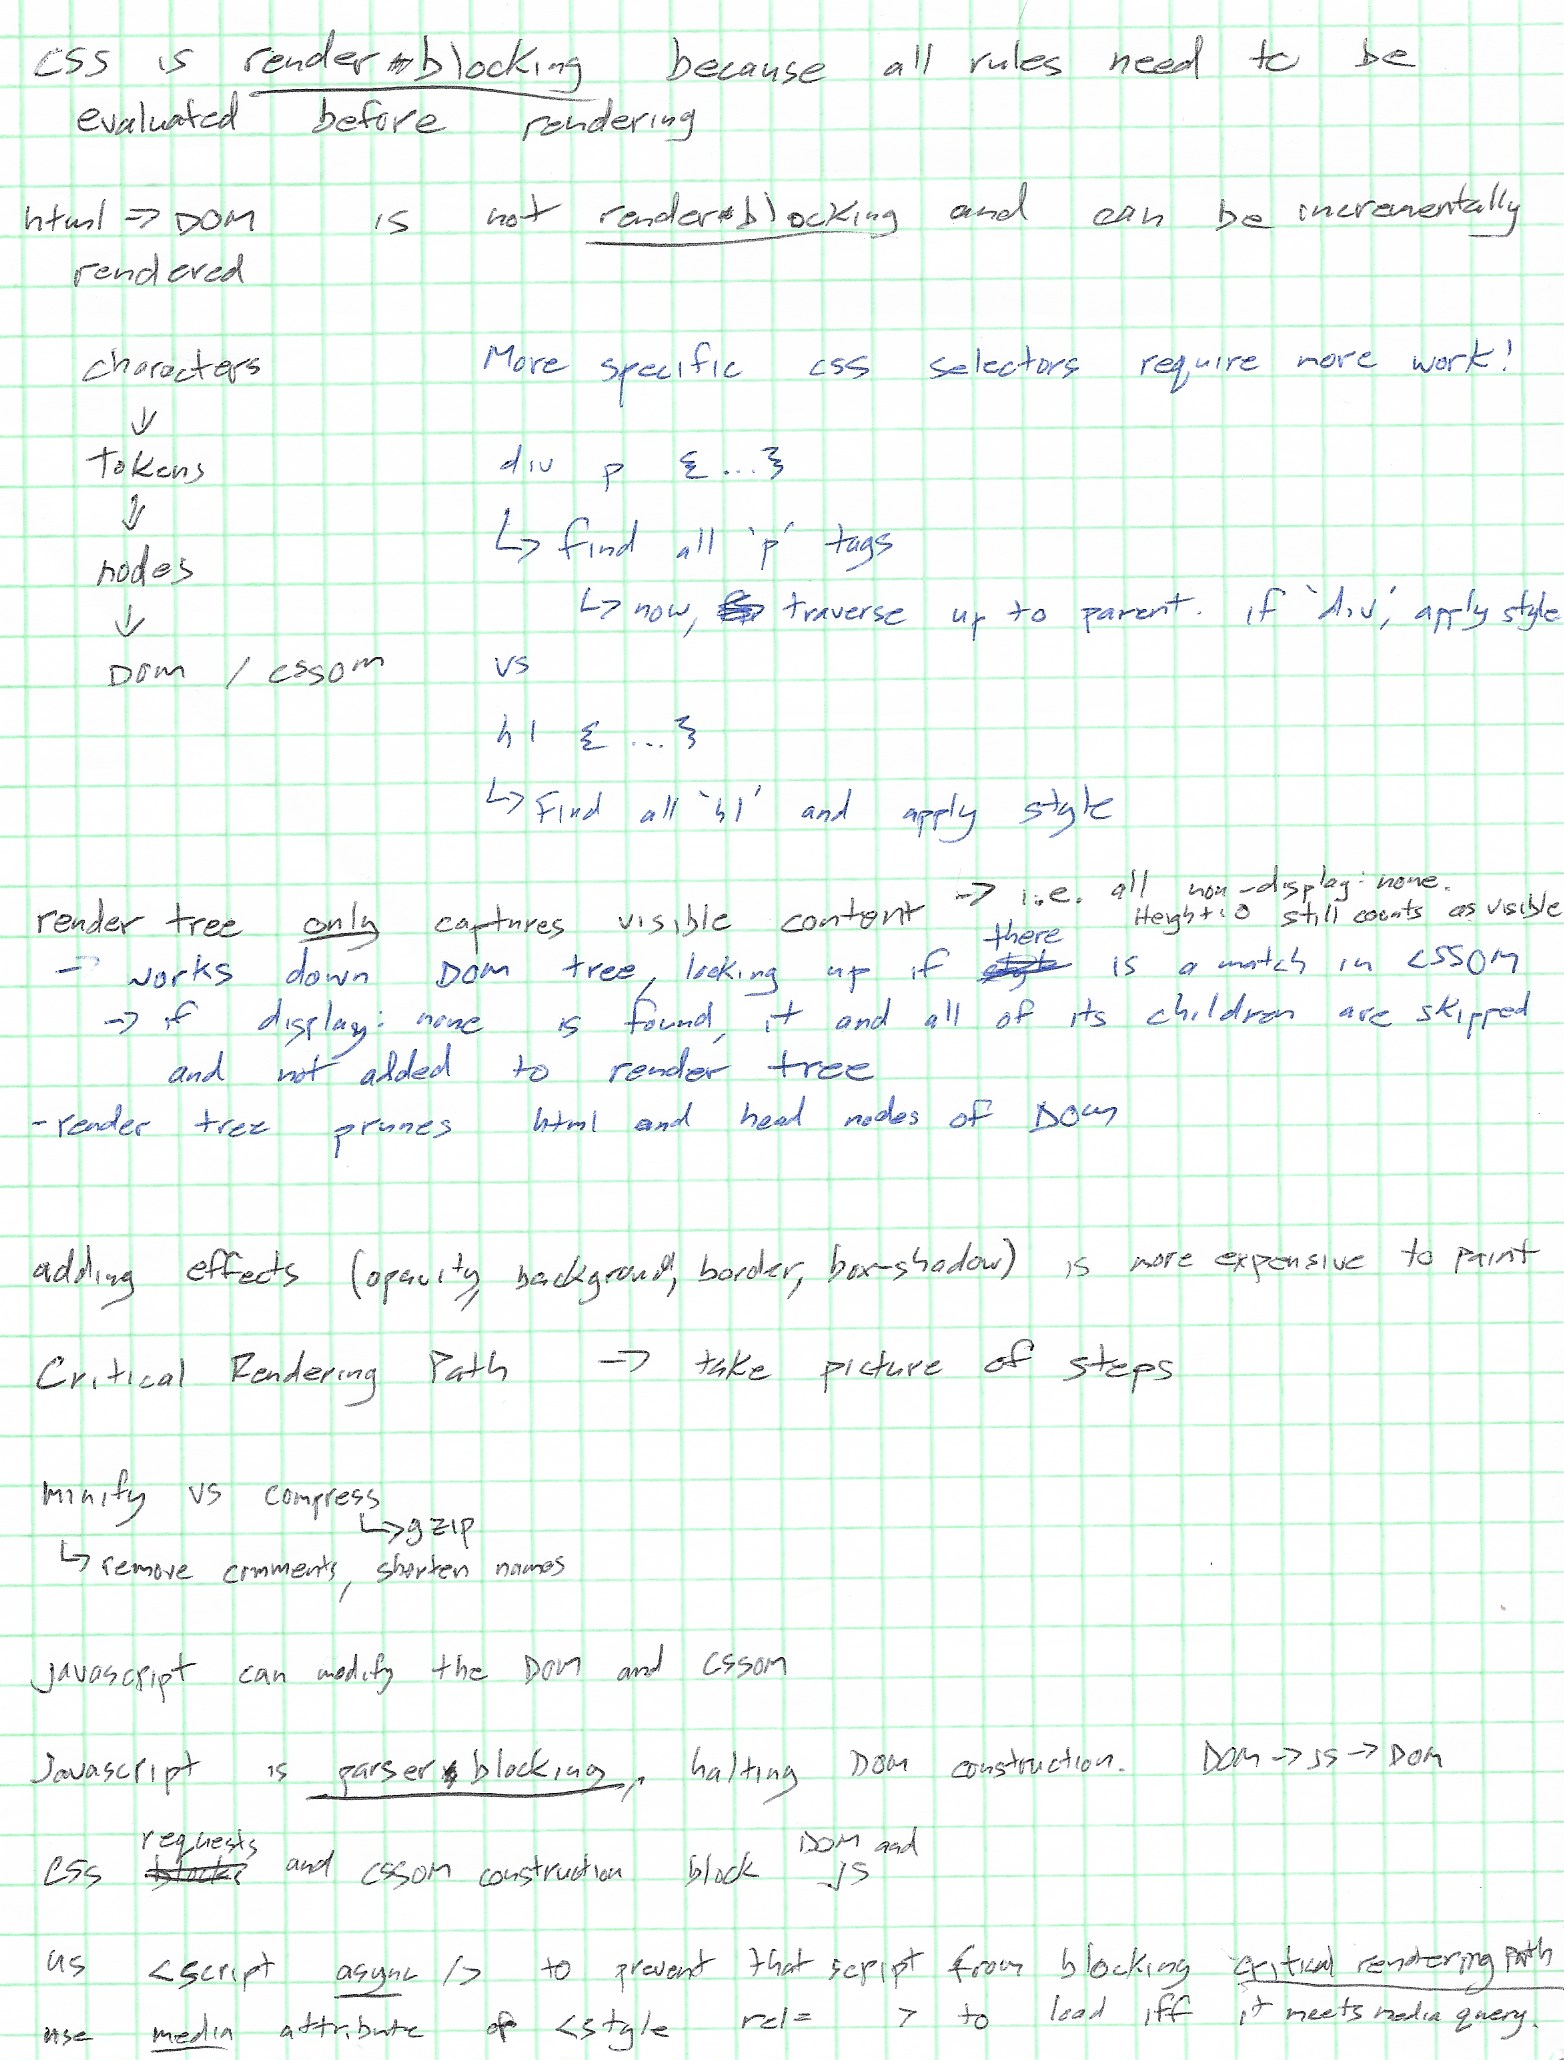 css is render blocking because all rules need to be
evaluated before rendering
html → DOM is not render blocking and can be incrementally
rendered
characters
↓
Tokens
↓
nodes
↓
DOM / CSSOM
More specific css selectors require more work!
div p {...}
↳ find all `p' tags
↳ now, traverse up to parent. if `div', apply style
vs
h1 {...}
↳ Find all `h1' and apply style
render tree only captures visible content → i.e. all non-display: none.
Height: 0 still counts as visible
- works down DOM tree, looking up if there is a match in CSSOM
→ if display: none is found, it and all of its children are skipped
and not added to render tree
- render tree prunes html and head nodes of DOM
adding effects (opacity, background, border, box-shadow) is more expensive to paint
Critical Rendering Path → take picture of steps
Minify vs compress
↳ gzip
↳ remove comments, shorten names
javascript can modify the DOM and CSSOM
Javascript is parser blocking, halting DOM construction. DOM → JS → DOM
CSS requests and CSSOM construction block DOM and JS
us <script async /> to prevent that script from blocking critical rendering path
use media attribute of <style rel= > to load iff it meets media query.